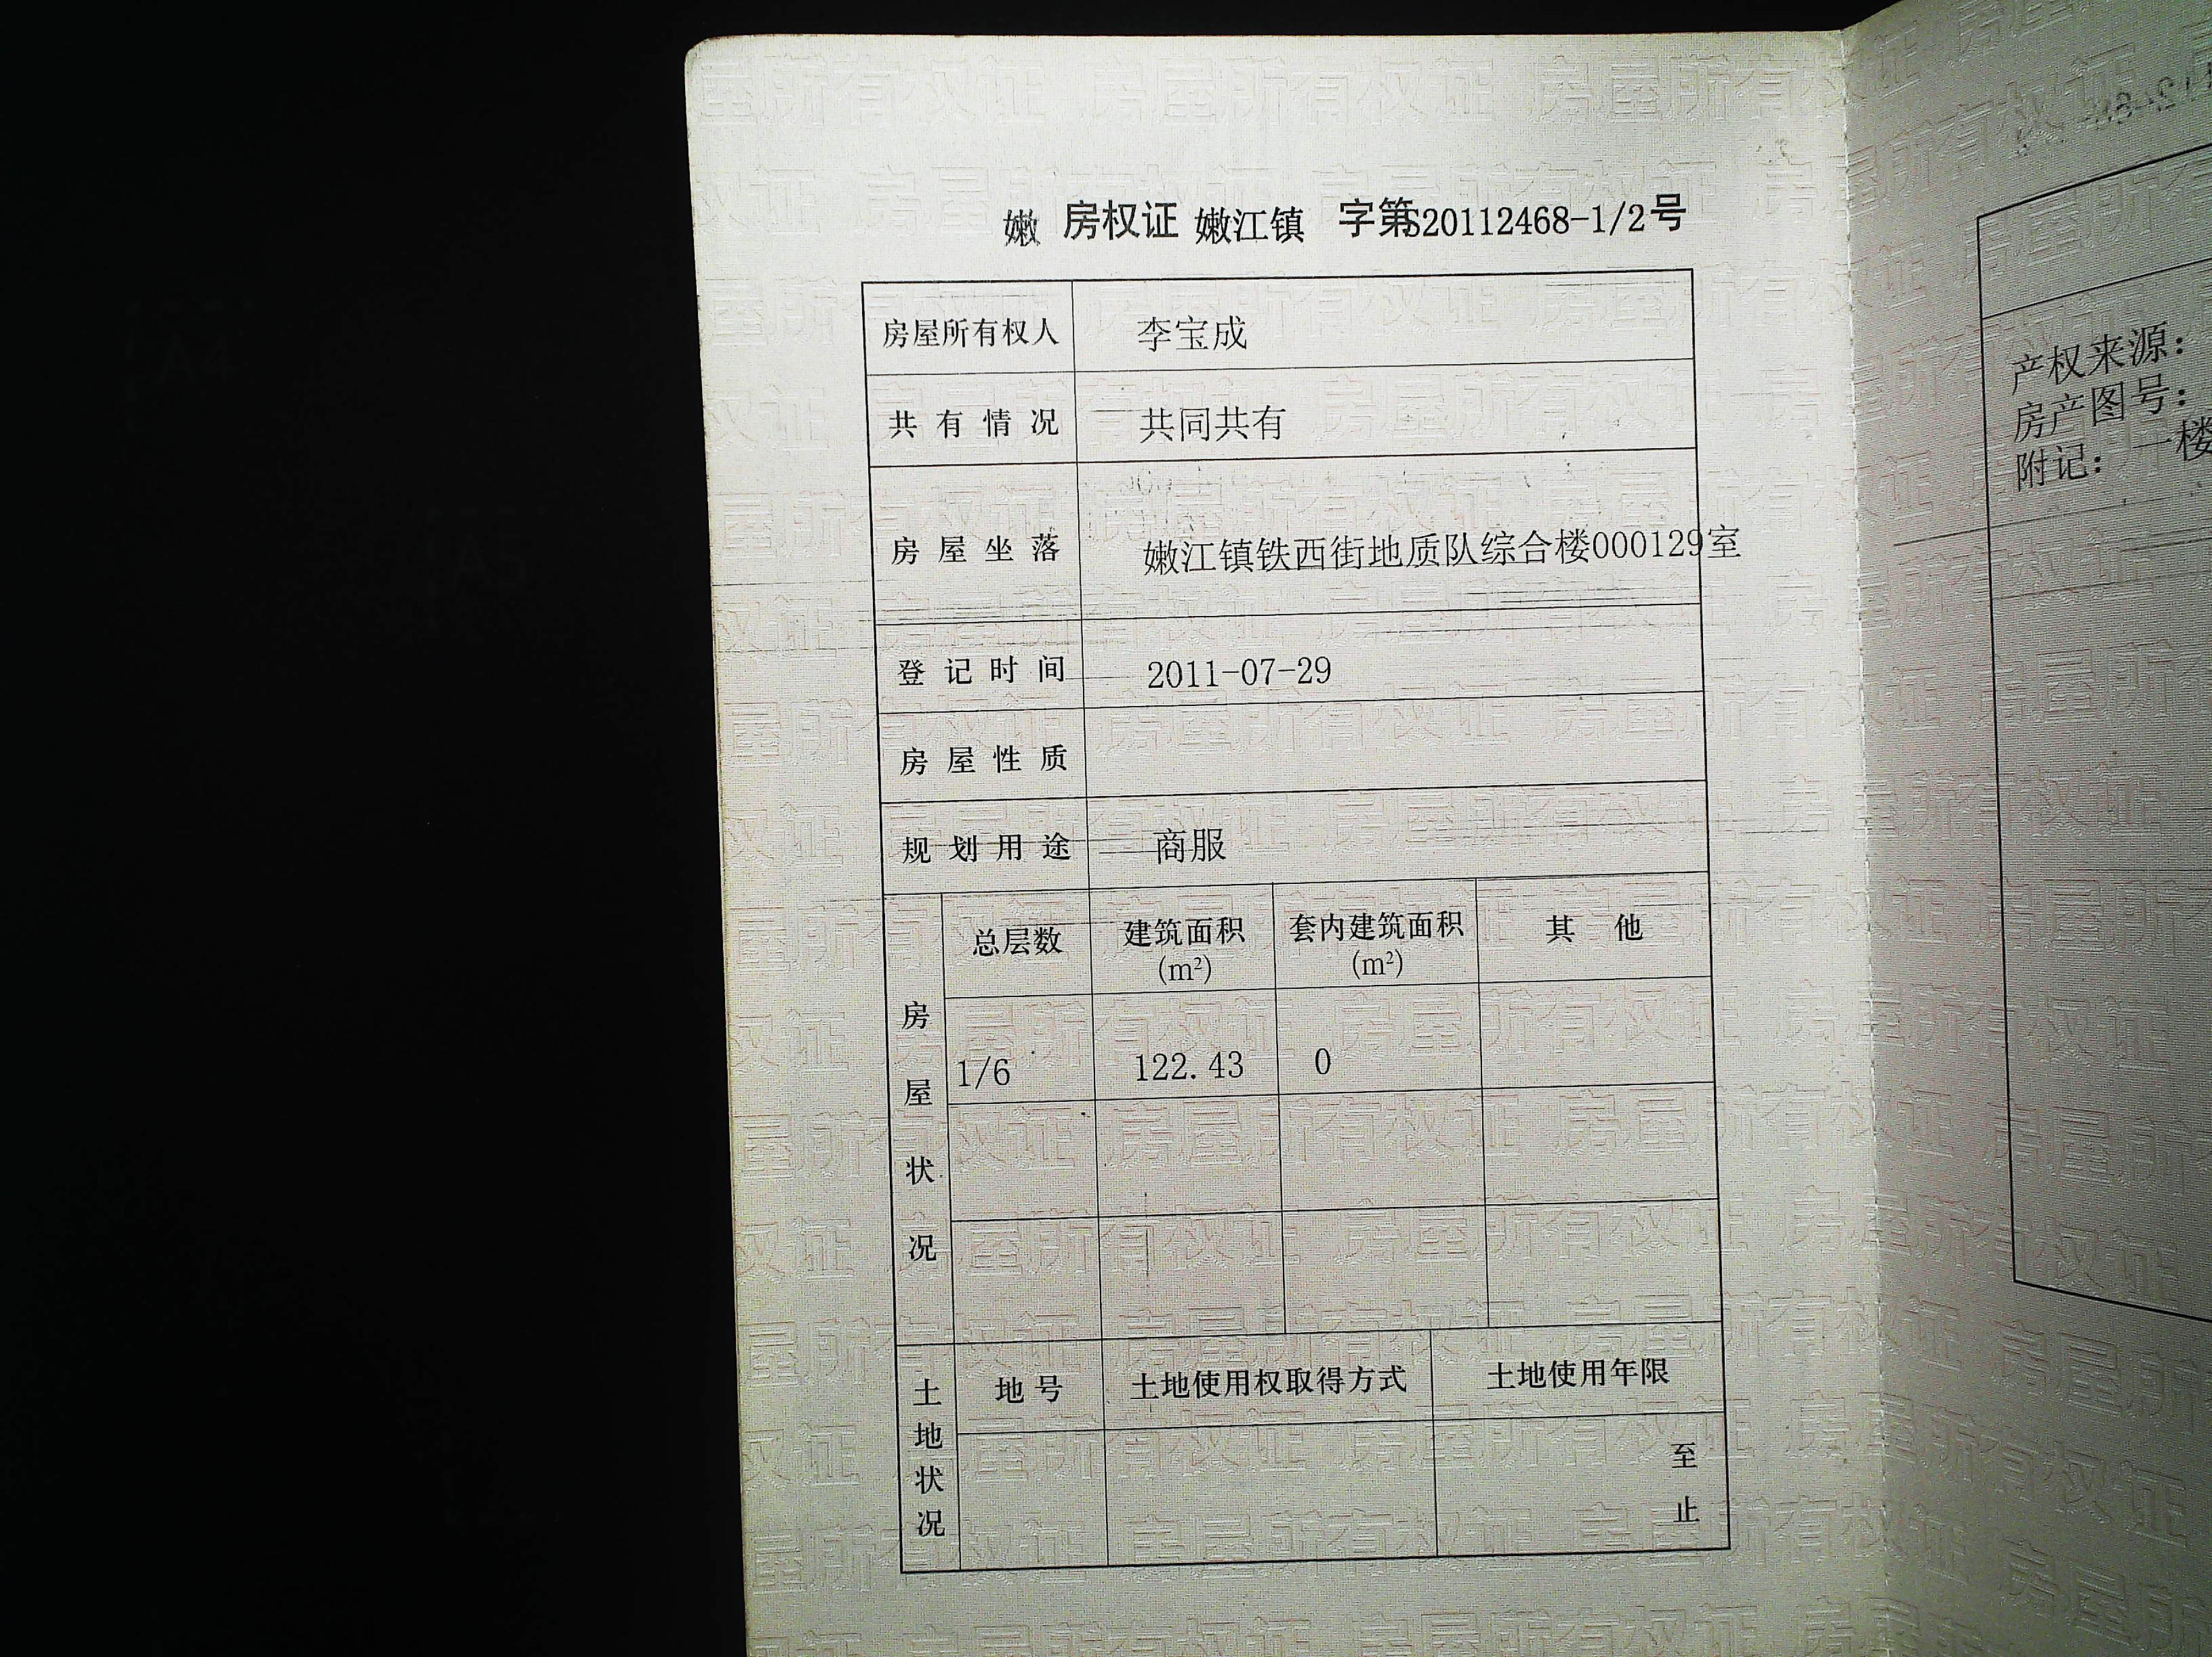 嫩 房权证 嫩江镇 字第S20112468-1/2号
房屋所有权人 李宝成
共有情况 共同共有
房屋坐落 嫩江镇铁西街地质队综合楼000129室
登记时间 2011-07-29
房屋性质
规划用途 商服
房屋状况
总层数 建筑面积(m²) 套内建筑面积(m²) 其他
1/6 122.43 0
土地状况
地号 土地使用权取得方式 土地使用年限
至
止
产权来源:
房产图号:
附记: 一楼